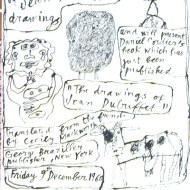 drawings
and will present
Daniel Cordier's
book which has
just been
published
"The drawings of
Jean Dubuffet"
Translated from the french
by Cecily Mackworth
George Braziller
publisher, New York
Friday 9 December 1960